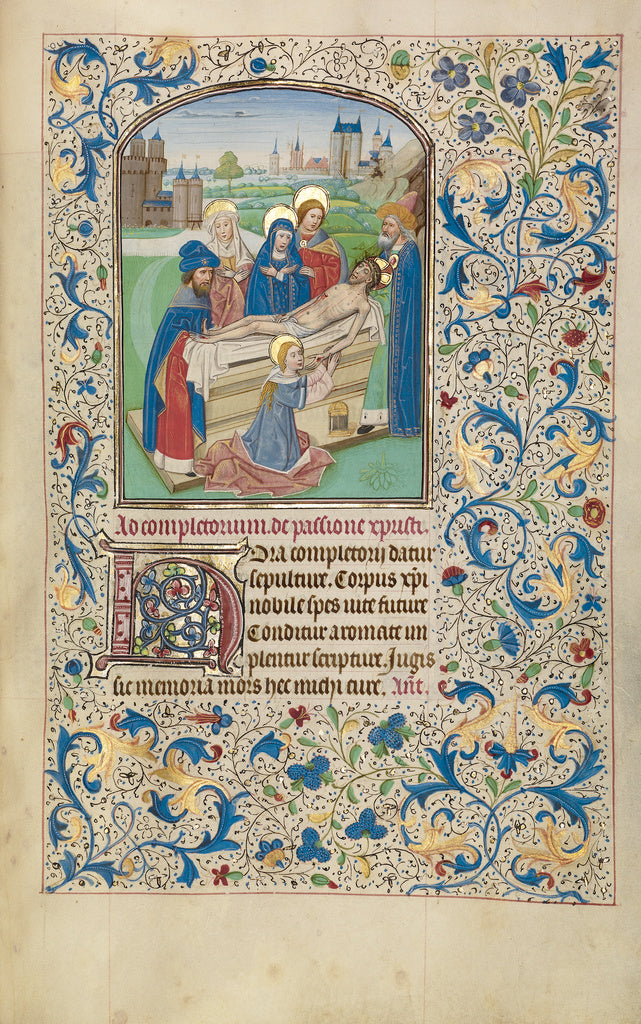 Ad completorium. de passione xpristi.
Hora completorij datur
sepulture. Corpus xpi
nobile spes uite future
Conditur aromate im
plentur scripture. Jugis
sit memoria mors hec michi cure. Ant.